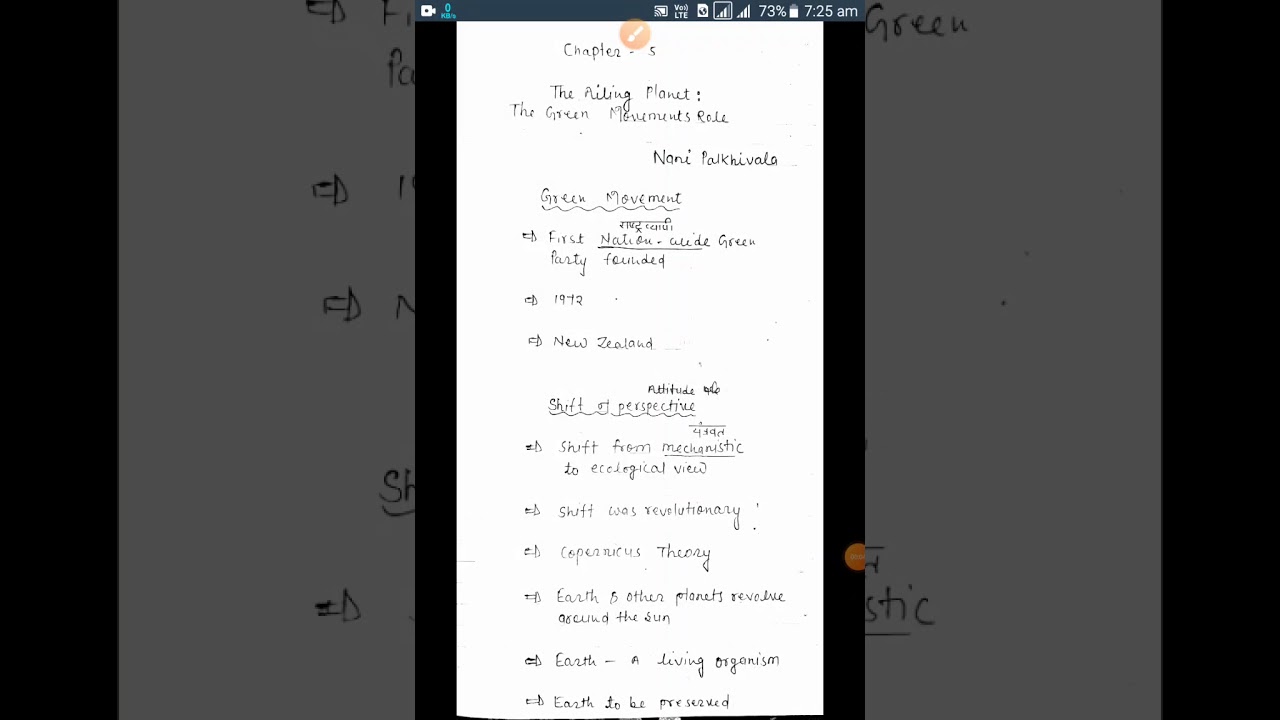 0
KB/s
Vo))
LTE
73%
7:25 am
Chapter - 5
The Ailing Planet:
The Green Movements Role
Nani Palkhivala
Green Movement
राष्ट्र व्यापी
⇒ First Nation-wide Green
Party founded
⇒ 1972
⇒ New Zealand
Attitude
Shift of perspective
यंत्रवत
⇒ Shift from mechanistic
to ecological view
⇒ Shift was revolutionary
⇒ Copernicus Theory
⇒ Earth & other planets revolve
around the sun
⇒ Earth – A living organism
⇒ Earth to be preserved